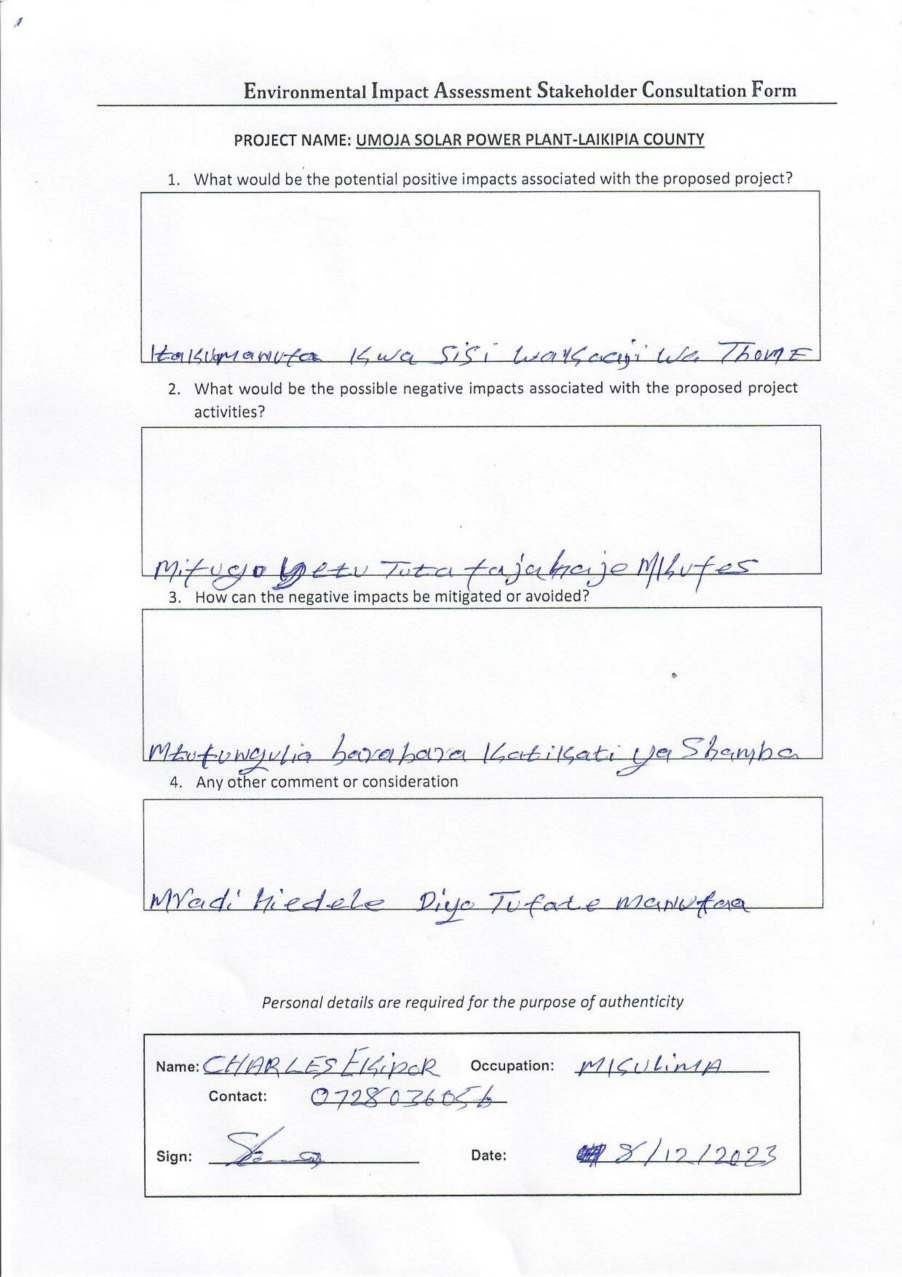 Environmental Impact Assessment Stakeholder Consultation Form
PROJECT NAME: UMOJA SOLAR POWER PLANT-LAIKIPIA COUNTY
1. What would be the potential positive impacts associated with the proposed project?
Itakumanufa Kwa Sisi Wakaaji Wa ThomE
2. What would be the possible negative impacts associated with the proposed project
activities?
Mifugo Yetu
3. How can the negative impacts be mitigated or avoided?
Mtufungulia barabara Katikati ya Shamba
4. Any other comment or consideration
Mradi hiedele Diyo Tufate manufaa
Personal details are required for the purpose of authenticity
Name: CHARLES EKipoR Occupation: MKULiMA
Contact: 0728036056
Sign:
Date: 8/12/2023